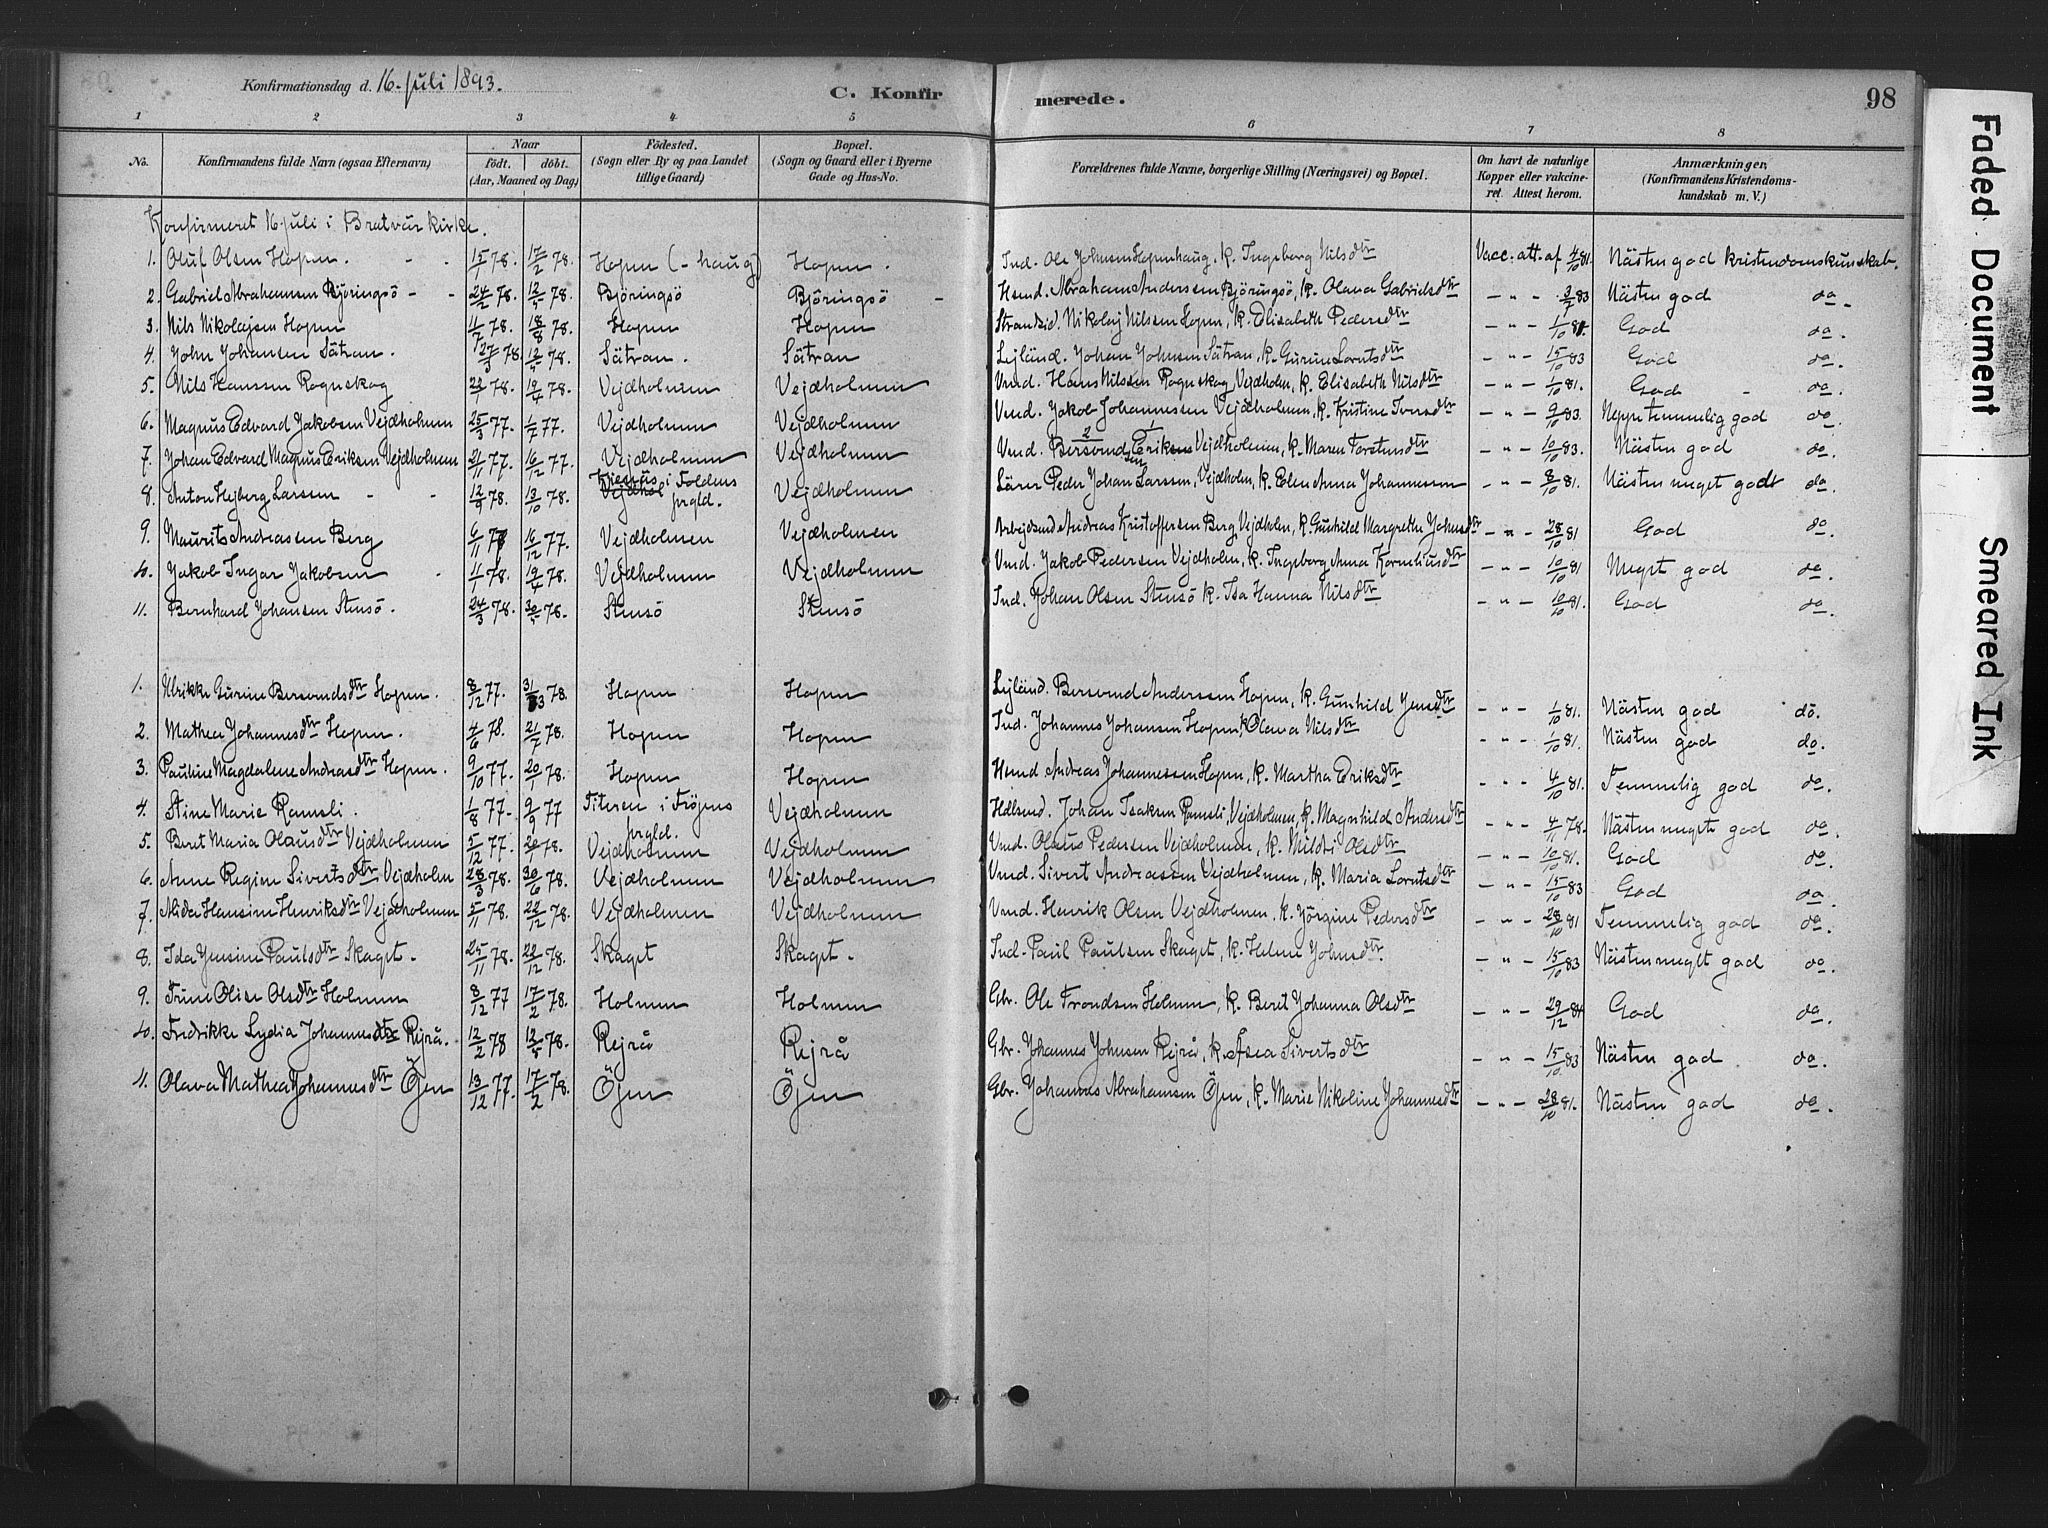 Konfirmationsdag d. 16. juli 1893.
C. Konfirmerede.
98
1 2 3 4 5 6 7 8
No. Konfirmandens fulde Navn (ogsaa Efternavn) Naar födt. döbt. (Aar, Maaned og Dag.) Födested. (Sogn eller By og paa Landet tillige Gaard) Bopæl. (Sogn og Gaard eller i Byerne Gade og Hus-No. Forældrenes fulde Navne, borgerlige Stilling (Næringsvei) og Bopæl. Om havt de naturlige Kopper eller vakcineret. Attest herom. Anmærkninger, (Konfirmandens Kristendomskundskab m. V.)
Konfirmeret 16 juli i Bratvär kirke.
1. Oluf Olsen Hopen. 15/1 78. 17/2 78. Hopen (-haug) Hopen. Ind. Ole Johnsen Hopenhaug, k. Ingeborg Nilsdtr Vacc. att. af 4/10 81. Nästen god kristendomskunskab.
2. Gabriel Abrahamsen Björingsö 24/2 78. 12/5 78. Björingsö Björingsö Hsmd. Abraham Anderssen Björingsö, k. Olava Gabrielsdtr - " - 3/7 83 Nästen god do.
3. Nils Nikolajsen Hopen 11/7 78. 18/8 78. Hopen Hopen Strandsid. Nikolaj Nilssen Hopen, k. Elisabeth Pedersdtr - " - 1/10 81. God do.
4. John Johansen Sätran. 27/3 78. 12/5 78. Sätran. Sätran Lejländ. Johan Johnsen Sätran, k. Gurine Lorntsdtr - " - 15/10 83 God do.
5. Nils Hanssen Rognskog 22/1 78. 19/4 78. Vejdholmen Vejdholmen Vmd. Hans Nilssen Rognskog Vejdholm, k. Elisabeth Nilsdtr - " - 1/10 81. God do.
6. Magnus Edvard Jakobsen Vejdholmen 25/3 77. 1/7 77. Vejdholmen Vejdholmen Vmd. Jakob Johannessen Vejdholmen, k. Kristine Iversdtr - " - 9/10 83. Neppe temmelig god do.
7. Johan Edvard Magnus Eriksen Vejdholmen 21/11 77. 16/12 77. Vejdholmen Vejdholmen Vmd. Bersvendsen Erik Vejdholmen, k. Maren Forstundtr - " - 10/10 83. Nästen god do.
8. Anton Hejberg Larssen 12/9 78. 13/10 78. i Foldens prgld. Vejdholmen Lärer Peder Johan Larssen, Vejdholm, k. Elen Anna Johannessen - " - 8/10 81. Nästen meget godt do.
9. Maurits Andreassen Berg 6/11 77 16/12 77. Vejdholmen Vejdholmen Arbejdsmd Andreas Kristoffersen Berg, Vejdholm, k. Gunhild Margrethe Johnsdtr - " - 28/10 81 God do.
10. Jakob Ingar Jakobsen 11/1 78. 19/4 78. Vejdholmen Vejdholmen Vmd. Jakob Pedersen Vejdholm, k. Ingeborg Anna Korneliusdtr - " - 10/10 81 Meget god do.
11. Bernhard Johansen Stensö. 24/3 78. 30/5 78. Stensö Stensö Ind. Johan Olsen Stensö k. Isa Hanna Nilsdtr - " - 10/10 81. God do.
1. Ulrikke Gurine Bersvendsdtr Hopen. 8/12 77. 31/3 78. Hopen Hopen Lejländ. Bersvend Anderssen Hopen, k. Gunhild Jensdtr - " - 1/10 81. Nästen god do.
2. Mathea Johannesdtr Hopen. 4/6 78. 21/7 78. Hopen Hopen Ind. Johannes Johansen Hopen, k. Olava Nilsdtr - " - 1/10 81. Nästen god do.
3. Pauline Magdalene Andreasdtr Hopen. 9/10 77. 20/1 78. Hopen Hopen Hsmd Andreas Johannessen Hopen, k. Martha Eriksdtr - " - 4/10 81. Temmelig god do.
4. Stine Marie Ramsli. 1/8 77. 9/9 77 Titeren i Fröjens prgld. Vejdholmen Hdlsmd. Johan Isaksen Ramsli, Vejdholmen, k. Magnhild Andersdtr - " - 4/11 78. Nästen meget god do.
5. Beret Maria Olausdtr Vejdholmen 5/12 77. 20/1 78. Vejdholmen Vejdholmen Vmd. Olaus Pedersen Vejdholmen, k. Mildri Olsdtr - " - 10/10 81. God do.
6. Anne Regine Sivertsdtr Vejdholm 28/3 78. 30/6 78. Vejdholmen Vejdholmen Vmd. Sivert Andreassen Vejdholmen, k. Maria Lorntsdtr - " - 15/10 83 God do.
7. Alida Hansine Henriksdtr Vejdholmen 5/11 78. 22/12 78. Vejdholmen Vejdholmen Vmd. Henrik Olsen Vejdholmen, k. Jörgine Pedersdtr - " - 28/10 81 Temmelig god do.
8. Ida Jensine Paulsdtr Skaget. 25/11 78. 22/12 78. Skaget Skaget. Ind. Paul Paulsen Skaget, k. Helene Johnsdtr. - " - 15/10 83 Nästen meget god do.
9. Trine Olise Olsdtr Holmen 8/12 77 17/2 78. Holmen Holmen Gbr. Ole Trondsen Holmen, k. Beret Johanna Olsdtr - " - 29/12 84 God do.
10. Fredrikke Lydia Johannesdtr Rejrå. 12/2 78 12/5 78. Rejrå Rejrå Gbr. Johannes Johnsen Rejrå, k. Åsea Sivertsdtr - " - 15/10 83 Nästen god do.
11. Olava Mathea Johannesdtr Öjen 13/12 77. 17/2 78. Öjen Öjen Gbr. Johannes Abrahamsen Öjen, k. Marie Nikoline Johannesdtr - " - 28/10 81. Nästen god do.
Faded Document
Smeared Ink